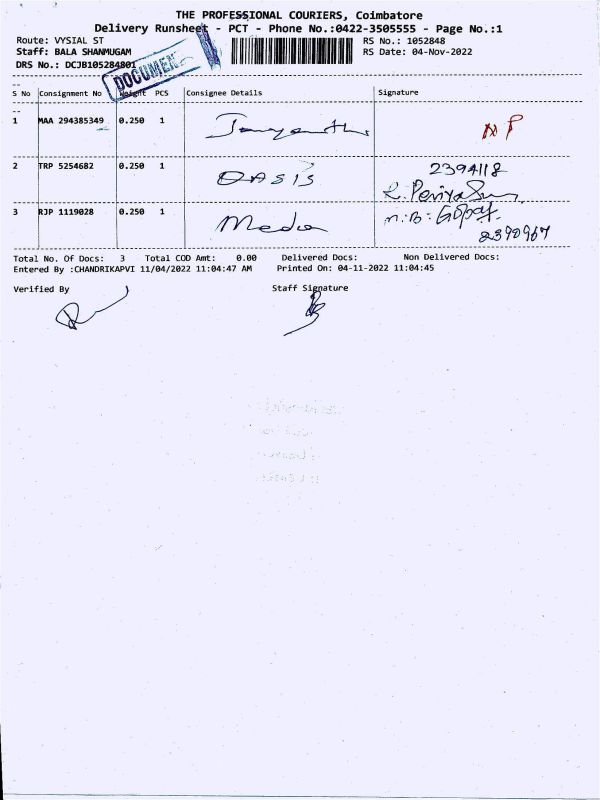 THE PROFESSIONAL COURIERS, Coimbatore
Delivery Runsheet - PCT - Phone No.:0422-3505555 - Page No.:1
Route: VYSIAL ST RS No.: 1052848
Staff: BALA SHANMUGAM RS Date: 04-Nov-2022
DRS No.: DCJB105284801
DOCUMEN
S No Consignment No Weight PCS Consignee Details Signature
1 MAA 294385349 0.250 1 NP
2 TRP 5254682 0.250 1 OASIS 2394118
3 RJP 1119028 0.250 1 Media
2390967
Total No. Of Docs: 3 Total COD Amt: 0.00 Delivered Docs: Non Delivered Docs:
Entered By :CHANDRIKAPVI 11/04/2022 11:04:47 AM Printed On: 04-11-2022 11:04:45
Verified By Staff Signature